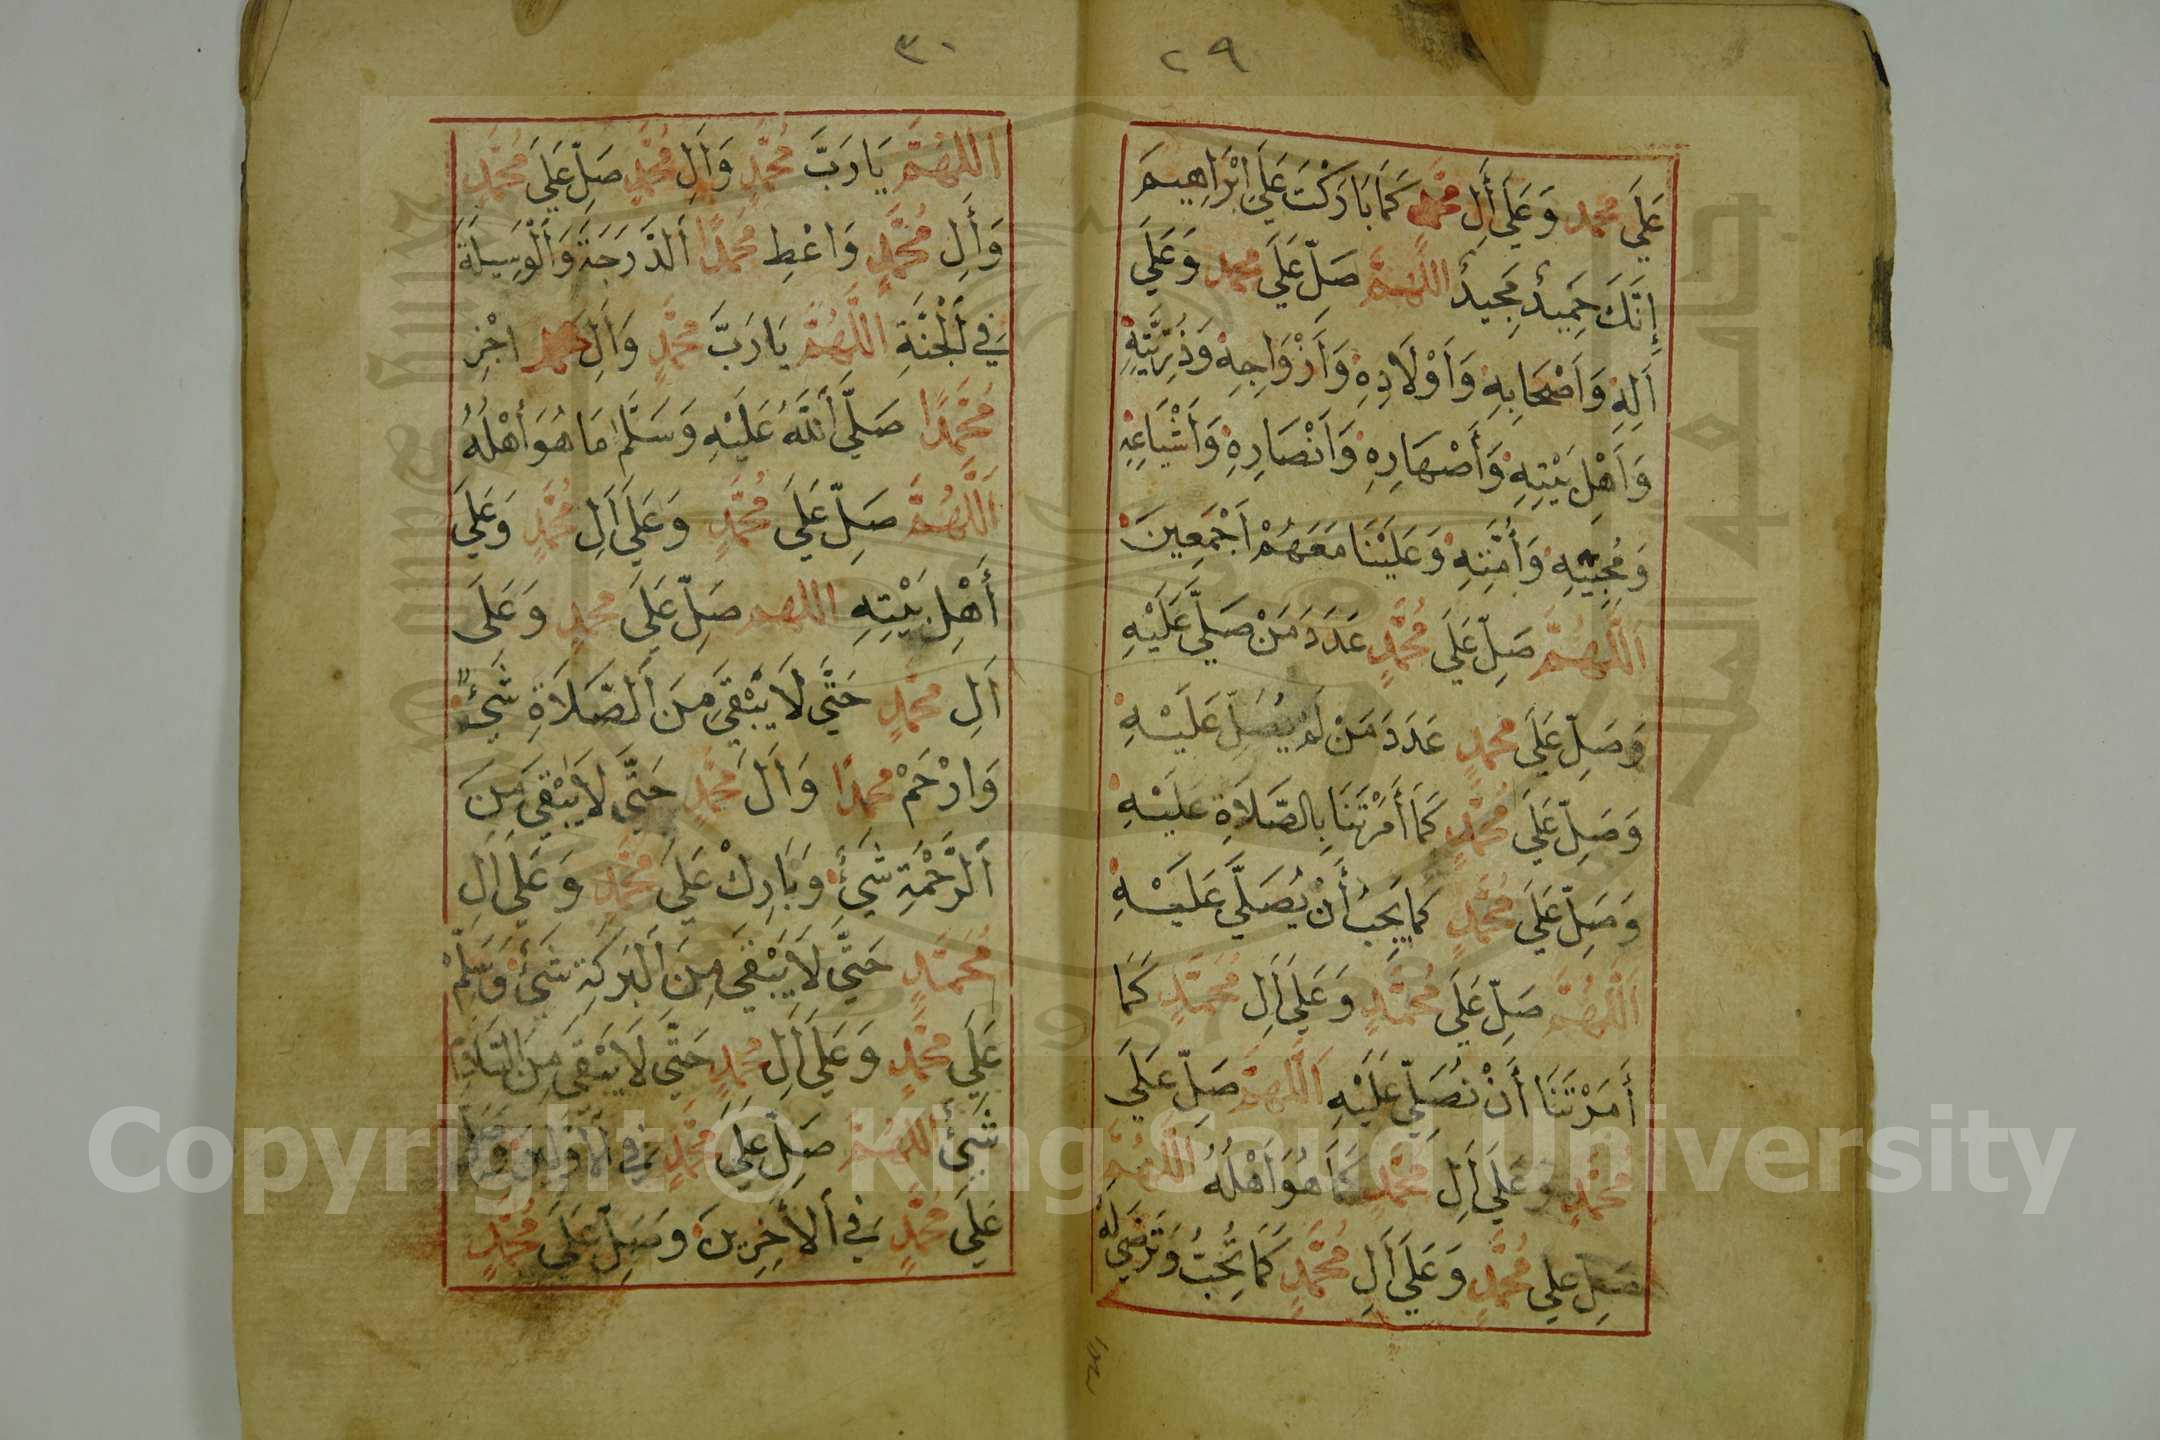 ٢٩
عَلَي محمد وَعَلَي أَلِ مُحَمَّدٍ كَمَا بَارَكْتَ عَلَي اِبْرَاهِيمَ
إِنَّكَ حَمِيدٌ مَجِيدٌ اللَّهُمَّ صَلِّ عَلَي محمدٍ وَعَلَي
اَلِهِ وَاَصْحَابِهِ وَاَوْلَادِهِ وَاَزْوَاجِهِ وَذُرِّيَّتِهِ
وَاَهْلِ بَيْتِهِ وَأَصْهَارِهِ وَاَنْصَارِهِ وَاَشْيَاعِهِ
وَمُحِبِّيهِ وَأُمَّتِهِ وَعَلَيْنَا مَعَهُمْ اَجْمَعِينَ
اَللَّهُمَّ صَلِّ عَلَي مُحَمَّدٍ عَدَدَ مَنْ صَلَّي عَلَيْهِ
وَصَلِّ عَلَي محمدٍ عَدَدَ مَنْ لَمْ يُصَلِّ عَلَيْهِ
وَصَلِّ عَلَي مُحَمَّدٍ كَمَا أَمَرْتَنَا بِالصَّلَاةِ عَلَيْهِ
وَصَلِّ عَلَي مُحَمَّدٍ كَمَا يَجِبُ أَنْ يُصَلَّي عَلَيْهِ
اَللَّهُمَّ صَلِّ عَلَي مُحَمَّدٍ وَعَلَي اَلِ مُحَمَّدٍ كَمَا
أَمَرْتَنَا أَنْ نُصَلِّي عَلَيْهِ اَللَّهُمَّ صَلِّ عَلَي
مُحَمَّدٍ وَعَلَي اَلِ مُحَمَّدٍ كَمَا هُوَ اَهْلُهُ اَللَّهُمَّ
صَلِّ عَلَي مُحَمَّدٍ وَعَلَي اَلِ مُحَمَّدٍ كَمَا تُحِبُّ وَتَرْضَي لَهُ
٣٠
اَللَّهُمَّ يَا رَبَّ مُحَمَّدٍ وَاَلِ مُحَمَّدٍ صَلِّ عَلَي مُحَمَّدٍ
وَأَلِ مُحَمَّدٍ وَاعْطِ مُحَمَّدًا اَلدَّرَجَةَ وَالْوَسِيلَةَ
فِي اَلْجَنَّةِ اَللَّهُمَّ يَا رَبَّ مُحَمَّدٍ وَاَلِ محمد اجْزِ
مُحَمَّدًا صَلَّي اَللَّهُ عَلَيْهِ وَسَلَّمَ مَا هُوَ أَهْلُهُ
اَللَّهُمَّ صَلِّ عَلَي مُحَمَّدٍ وَعَلَي اَلِ مُحَمَّدٍ وَعَلَي
أَهْلِ بَيْتِهِ اللهم صَلِّ عَلَي محمدٍ وَعَلَى
اَلِ مُحَمَّدٍ حَتَّي لَا يَبْقَي مِنَ اَلصَّلَاةِ شَيْءٌ
وَارْحَمْ مُحَمَّدًا وَاَلَ مُحَمَّدٍ حَتَّي لَا يَبْقَي مِنَ
اَلرَّحْمَةِ شَيْءٌ وَبَارِكْ عَلَي مُحَمَّدٍ وَعَلَي اَلِ
مُحَمَّدٍ حَتَّي لَا يَبْقَي مِنَ اَلْبَرَكَةِ شَيْءٌ وَسَلِّمْ
عَلَي مُحَمَّدٍ وَعَلَي اَلِ مُحَمَّدٍ حَتَّي لَا يَبْقَي مِنَ السَّلَامِ
شَيْءٌ اَللَّهُمَّ صَلِّ عَلَي مُحَمَّدٍ فِي اَلْاَوَّلِينَ وَصَلِّ
عَلَي مُحَمَّدٍ فِي اَلْاَخِرِينَ وَصَلِّ عَلَي مُحَمَّدٍ
Copyright © King Saud University
جامعة الملك سعود
King Saud University
1957